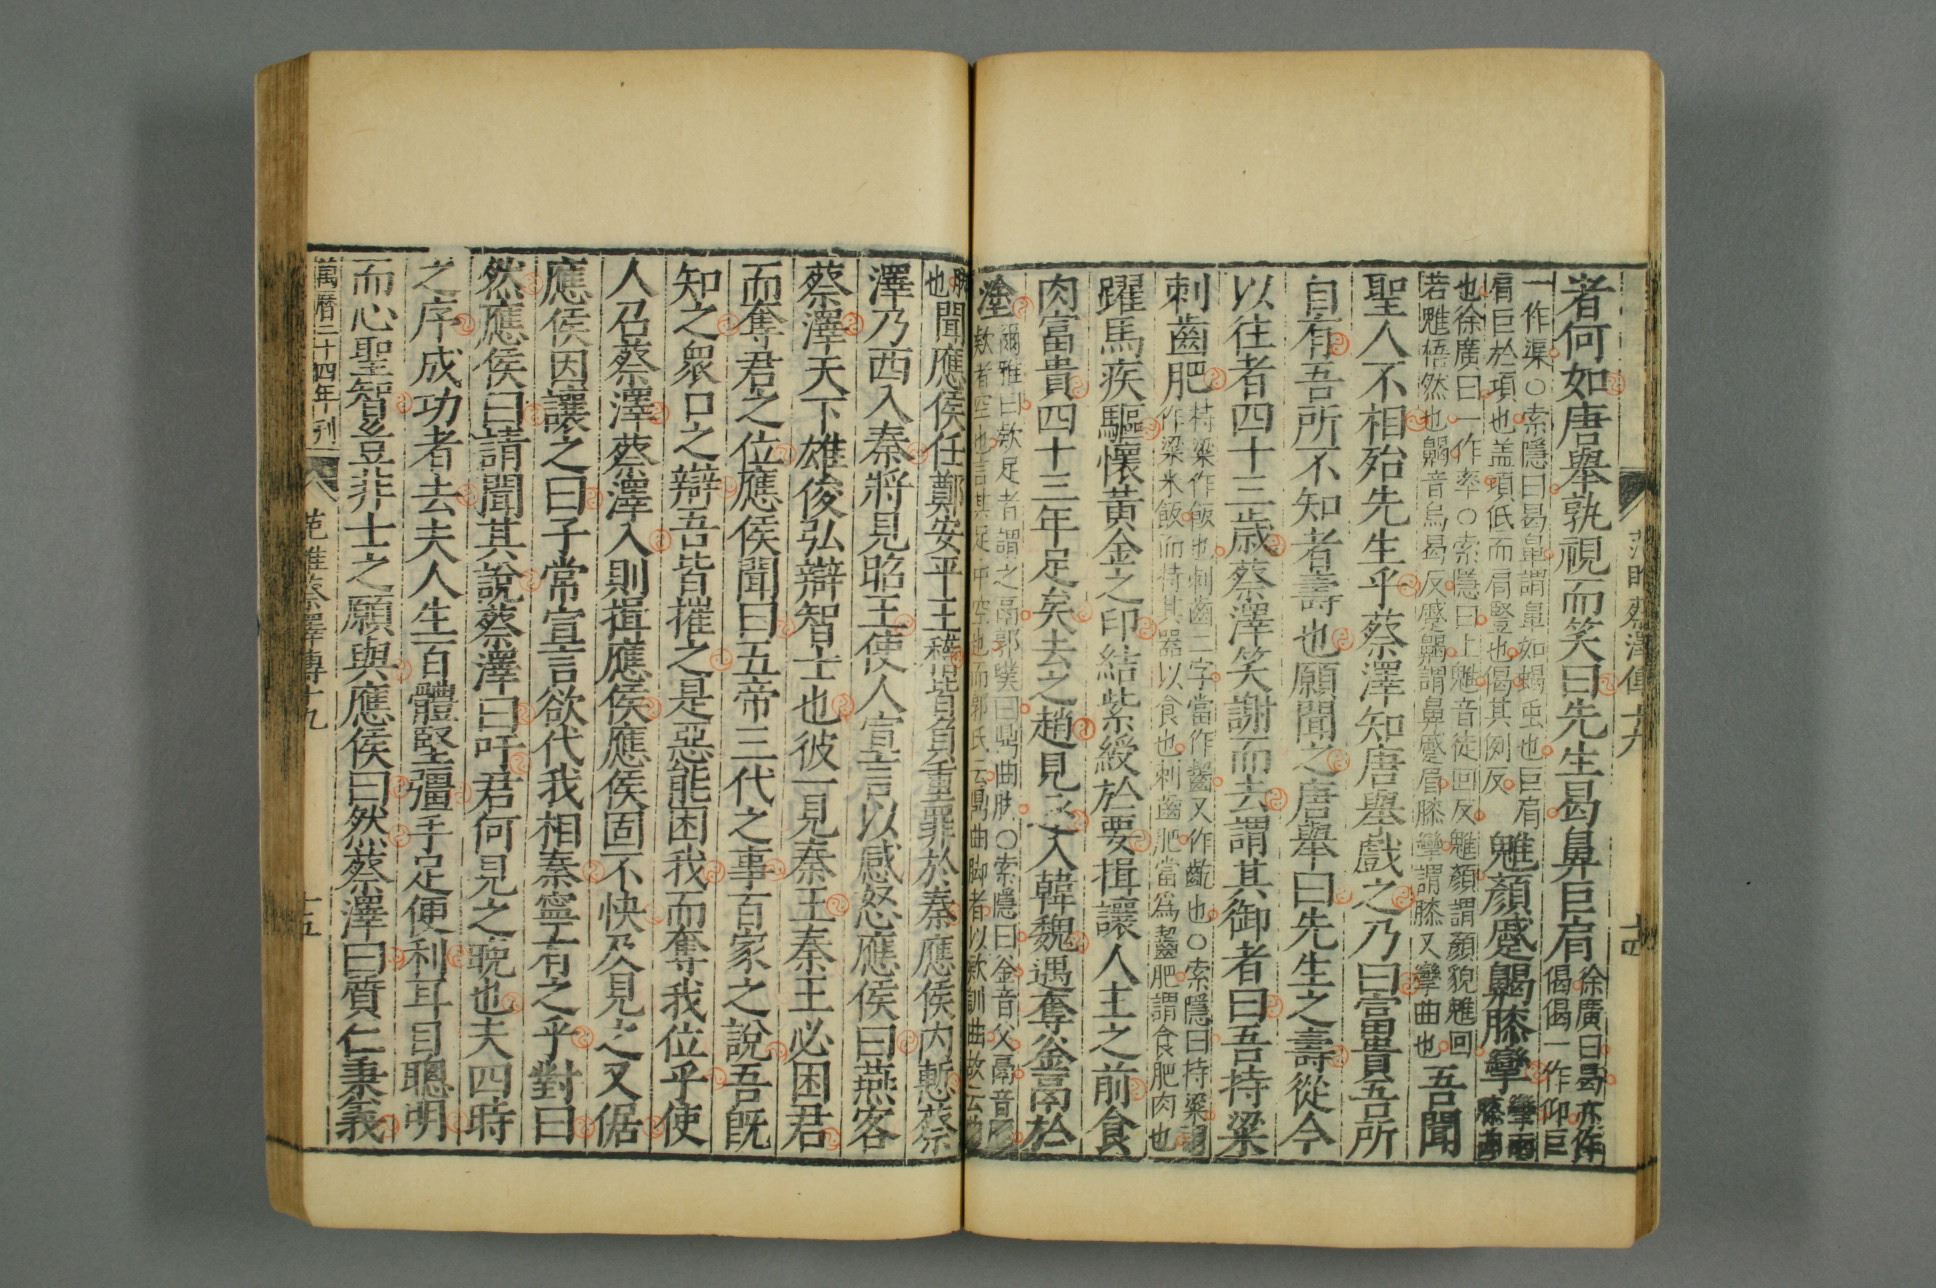 者何如唐舉孰視而笑曰先生曷鼻巨肩徐廣曰曷亦作偈偈一作仰巨
一作渠○索隱曰曷鼻謂鼻如蝎虫也巨肩肩巨於項也盖項低而肩豎也偈其例反魋顏蹙齃膝攣攣兩膝曲
也徐廣曰一作率○索隱曰上魋音徒回反魋顏謂顏貌魋回若魋梧然也齃音烏曷反蹙齃謂鼻蹙眉膝攣謂膝又攣曲也吾聞
聖人不相殆先生乎蔡澤知唐舉戲之乃曰富貴吾所
自有吾所不知者壽也願聞之唐舉曰先生之壽從今
以往者四十三歲蔡澤笑謝而去謂其御者曰吾持粱
刺齒肥持粱作飯也刺齒二字當作齧又作齕也○索隱曰持粱謂作粱米飯而持其器以食也刺齒肥當為齧肥謂食肥肉也
躍馬疾驅懷黃金之印結紫綬於要揖讓人主之前食
肉富貴四十三年足矣去之趙見逐入韓魏遇奪釜鬲於
塗爾雅曰款足者謂之鬲郭璞曰鼎曲脚○索隱曰釜音父鬲音款者空也言其足中空也而郭氏云鼎曲脚者以款訓曲故云曲
范睢蔡澤傳十九 十四
脚也聞應侯任鄭安平王稽皆負重罪於秦應侯內慙蔡
澤乃西入秦將見昭王使人宣言以感怒應侯曰燕客
蔡澤天下雄俊弘辯智士也彼一見秦王秦王必困君
而奪君之位應侯聞曰五帝三代之事百家之說吾既
知之衆口之辯吾皆摧之是惡能困我而奪我位乎使
人召蔡澤蔡澤入則揖應侯應侯固不快及見之又倨
應侯因讓之曰子常宣言欲代我相秦寧有之乎對曰
然應侯曰請聞其說蔡澤曰吁君何見之晚也夫四時
之序成功者去夫人生百體堅彊手足便利耳目聰明
而心聖智豈非士之願與應侯曰然蔡澤曰質仁秉義
萬曆二十四年刊 范睢蔡澤傳十九 十五